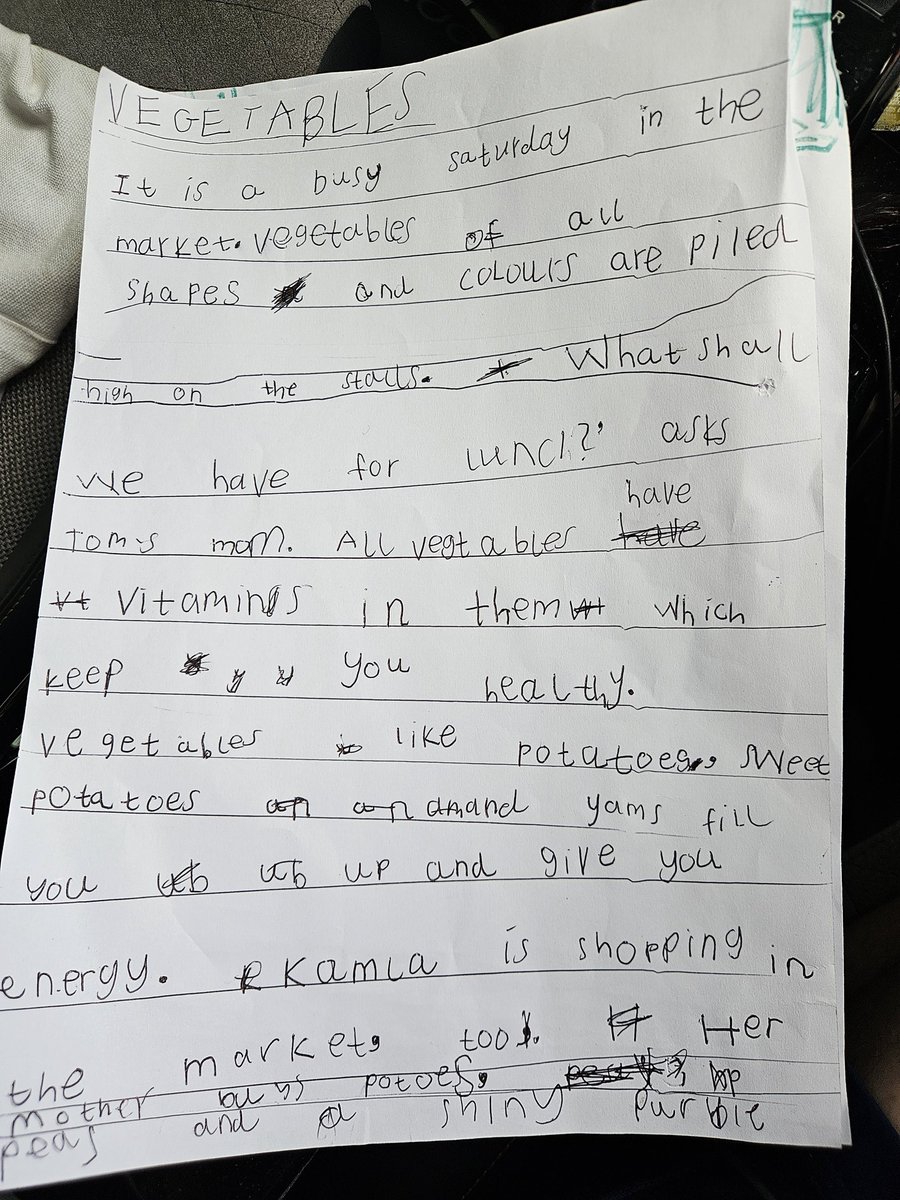 VEGETABLES
It is a busy saturday in the
market. vegetables of all
shapes and colours are piled
high on the stalls. What shall
we have for lunch?' asks
Tom's mom. All vegtables have
vitamins in them which
keep you healthy.
vegetables like potatoes, sweet
potatoes and yams fill
you up and give you
energy. Kamla is shopping in
the market, too. Her
mother buys potoes,
peas and a shiny purple